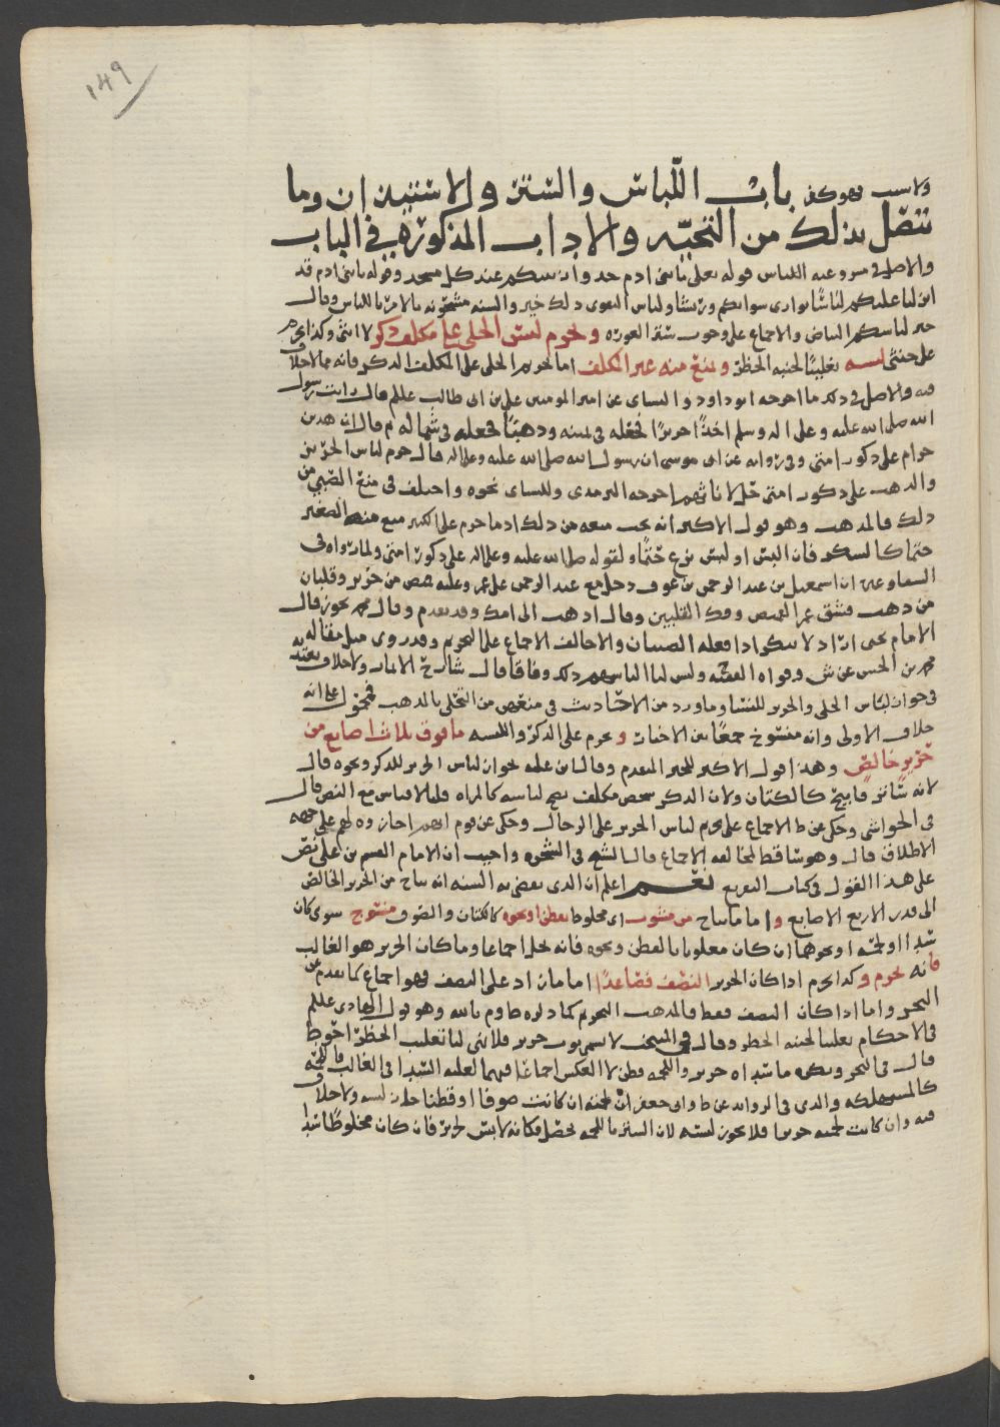 ١٤٩
ولا سب فهو كفر باب اللباس والستر والاستيذان وما
يتصل بذلك من التحيه والاداب المذكوره في الباب
والاصل في مشروعيه اللباس قوله تعلى يا بني ادم خذوا زينتكم عند كل مسجد وقوله يا بني ادم قد
انزلنا عليكم لباسا يواري سواتكم وريشا ولباس التقوى ذلك خير والسنه مشحونه بالامر باللباس وقال
خير لباسكم البياض والاجماع على وجوب ستر العوره ويحرم لبس الحلي على مكلف ذكر لا انثى وكذا يحرم
على خنثى لبسه تغليبا لجنبه الحظر ويمنع منه غير المكلف اما تحريم الحلي على المكلف الذكر فانه مما لا خلاف
فيه والاصل في ذلك ما اخرجه ابو داود والنساي عن امير المومنين علي بن ابي طالب عليلم قال رايت رسول
الله صلى الله عليه وعلى اله وسلم اخذ حريرا فجعله في يمينه وذهبا فجعله في شماله ثم قال ان هذين
حرام على ذكور امتي وفي روايه عن ابي موسى ان رسول الله صلى الله عليه وعلى اله قال حرم لباس الحرير
والذهب على ذكور امتي حل لاناثهم اخرجه الترمذي وللنساي نحوه واختلف في منع الصبي من
ذلك فالمذهب وهو قول الاكثر انه يجب منعه من ذلك اذ ما حرم على الكبير منع منه الصغير
حتما كالمسكر فان لبس او لبس نزع حتما ولقوله صلى الله عليه وعلى اله على ذكور امتي ولما رواه في
الشفا وغيره ان اسمعيل بن عبد الرحمن بن عوف دخل مع عبد الرحمن على عمر وعليه قميص من حرير وقلبان
من ذهب فشق عمر القميص وفك القلبين وقال اذهب الى امك وقد تقدم وقال محمد يجوز قال
الامام يحيى اراد لا ينكر اذا فعله الصبيان والا خالف الاجماع على التحريم وقد روي مثل مقاله
محمد بن الحسن عن ش
في جواز لباس الحلي والحرير للنسا وما ورد من الاحاديث في منعهن من التحلي بالذهب فمحمول على انه
خلاف الاولى وانه منسوخ جمعا بين الاخبار ويحرم على الذكر واللبسه ما فوق ثلاث اصابع من
حرير خالص وهذا قول الاكثر للخبر المتقدم وقال ابن عليه يجوز لباس الحرير للذكر ونحوه قال
لانه ساتر فابيح كالكتان ولان الذكر شخص مكلف فصح لباسه كالمراه قلنا لا قياس مع النص قال
في الحواشي وحكى عن ط الاجماع على تحريم لباس الحرير على الرجال وحكى عن قوم انهم اجازوه لهم على جهه
الاطلاق قال وهو ساقط لمخالفه الاجماع
على هذا القول في كتاب نعم اعلم ان الذي يقضي به السنه انه يباح من الحرير الخالص
الى قدر الاربع الاصابع واما ما يباح من مشوب اي مخلوط بقطن او نحوه كالكتان والصوف منسوج سوى كان
سدا او لحمه او نحوهما ان كان مغلوبا بالقطن ونحوه فانه يحل اجماعا وما كان الحرير هو الغالب
فانه يحرم وكذا يحرم اذا كان الحرير النصف فصاعدا اما ما زاد على النصف فهو اجماع كما تقدم عن
البحر واما اذا كان النصف فقط فالمذهب التحريم كما ذكره ط وم بالله وهو قول الهادي عليلم
في الاحكام تغليبا لجنبه الحظر وقال في المنتخب لا يسمى ثوب حرير فلا يثنى لنا تغليب الحظر احوط
قال في البحر ويكره ما سداه حرير واللحمه قطن لا العكس اجماعا فيهما لغلبه السدا في الغالب فاللحمه
كالمستهلكه والذي في الروايه عن ط وابي جعفر ان لحمته ان كانت صوفا او قطنا جاز لبسه ولا خلاف
فيه وان كانت لحمته حريرا فلا يجوز لبسه لان الستر باللحمه يحصل فكانه لابس لحرير فان كان مخلوطا سدا